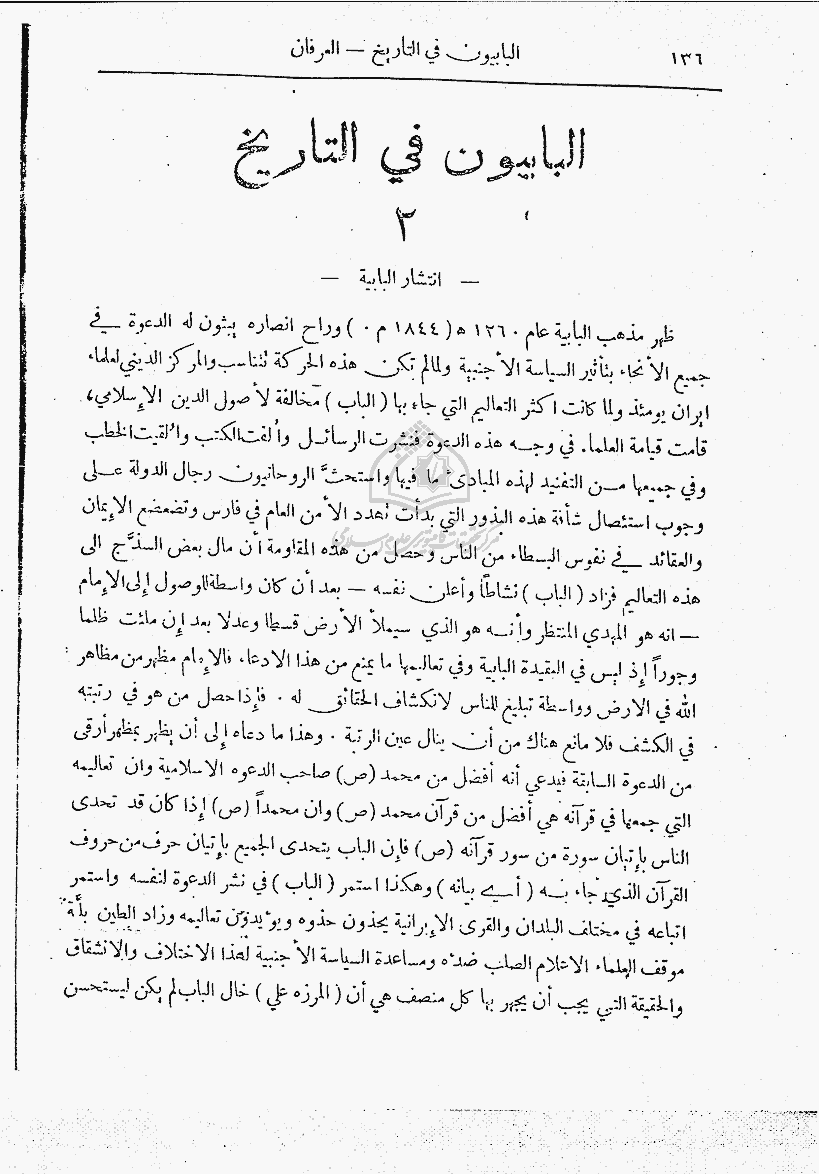 ١٣٦ البابيون في التاريخ — العرفان
البابيون في التاريخ
٢
— انتشار البابية —
ظهر مذهب البابية عام ١٢٦٠ ه ( ١٨٤٤ م ٠ ) وراح انصاره يبثون له الدعوة في
جميع الأنحاء بتأثير السياسة الأجنبية ولما لم تكن هذه الحركة تتناسب والمركز الديني لعلماء
ايران يومئذ ولما كانت اكثر التعاليم التي جاء بها ( الباب ) مخالفة لأصول الدين الإسلامي،
قامت قيامة العلماء في وجه هذه الدعوة فنشرت الرسائل وألفت الكتب وألقيت الخطب
وفي جميعها من التفنيد لهذه المبادئ ما فيها واستحثَّ الروحانيون رجال الدولة على
وجوب استئصال شأفة هذه البذور التي بدأت تهدد الأمن العام في فارس وتضعضع الإيمان
والعقائد في نفوس البسطاء من الناس وحصل من هذه المقاومة أن مال بعض السذَّج الى
هذه التعاليم فزاد ( الباب ) نشاطاً وأعلن نفسه — بعد أن كان واسطة للوصول إلى الإمام
— انه هو المهدي المنتظر وأنه هو الذي سيملأ الأرض قسطا وعدلا بعد إن ملئت ظلما
وجوراً إذ ليس في العقيدة البابية وفي تعاليمها ما يمنع من هذا الادعاء فالإمام مظهر من مظاهر
الله في الارض وواسطة تبليغ للناس لانكشاف الحقائق له ٠ فإذا حصل من هو في رتبته
في الكشف فلا مانع هناك من أن ينال عين الرتبة ٠ وهذا ما دعاه إلى أن يظهر بمظهر أرقى
من الدعوة السابقة فيدعي أنه أفضل من محمد (ص) صاحب الدعوه الاسلامية وان تعاليمه
التي جمعها في قرآنه هي أفضل من قرآن محمد (ص) وان محمداً (ص) إذا كان قد تحدى
الناس بإتيان سورة من سور قرآنه (ص) فإن الباب يتحدى الجميع بإتيان حرف من حروف
القرآن الذي جاء به ( أي بيانه ) وهكذا استمر ( الباب ) في نشر الدعوة لنفسه واستمر
اتباعه في مختلف البلدان والقرى الإيرانية يحذون حذوه ويؤيدون تعاليمه وزاد الطين بلَّة
موقف العلماء الاعلام الصلب ضده ومساعدة السياسة الأجنبية لهذا الاختلاف والانشقاق
والحقيقة التي يجب أن يجهر بها كل منصف هي أن ( المرزه علي ) خال الباب لم يكن ليستحسن